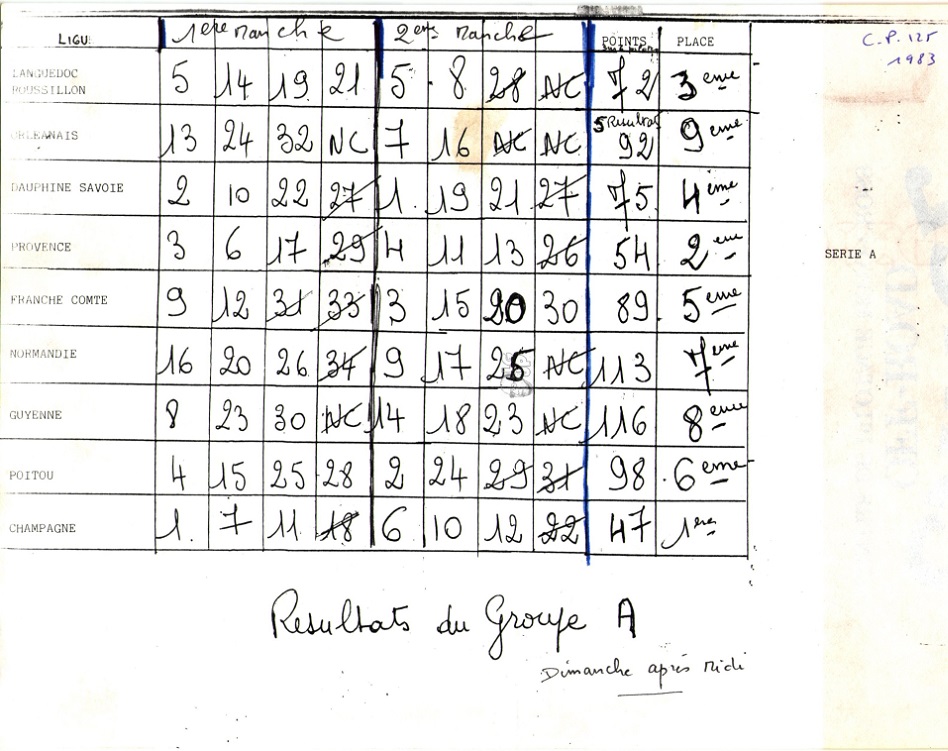 C.P. 125
1983
LIGU 1ere Manche 2eme Manche POINTS PLACE
LANGUEDOC ROUSSILLON 5 14 19 21 5 8 28 NC 72 3eme
ORLEANAIS 13 24 32 NC 7 16 NC NC 5 Resultats 92 9eme
DAUPHINE SAVOIE 2 10 22 27 1 19 21 27 75 4eme
PROVENCE 3 6 17 29 4 11 13 26 54 2eme
SERIE A
FRANCHE COMTE 9 12 31 33 3 15 20 30 89 5eme
NORMANDIE 16 20 26 34 9 17 25 NC 113 7eme
GUYENNE 8 23 30 NC 14 18 23 NC 116 8eme
POITOU 4 15 25 28 2 24 29 31 98 6eme
CHAMPAGNE 1 7 11 18 6 10 12 22 47 1ere
Resultats du Groupe A
Dimanche après Midi